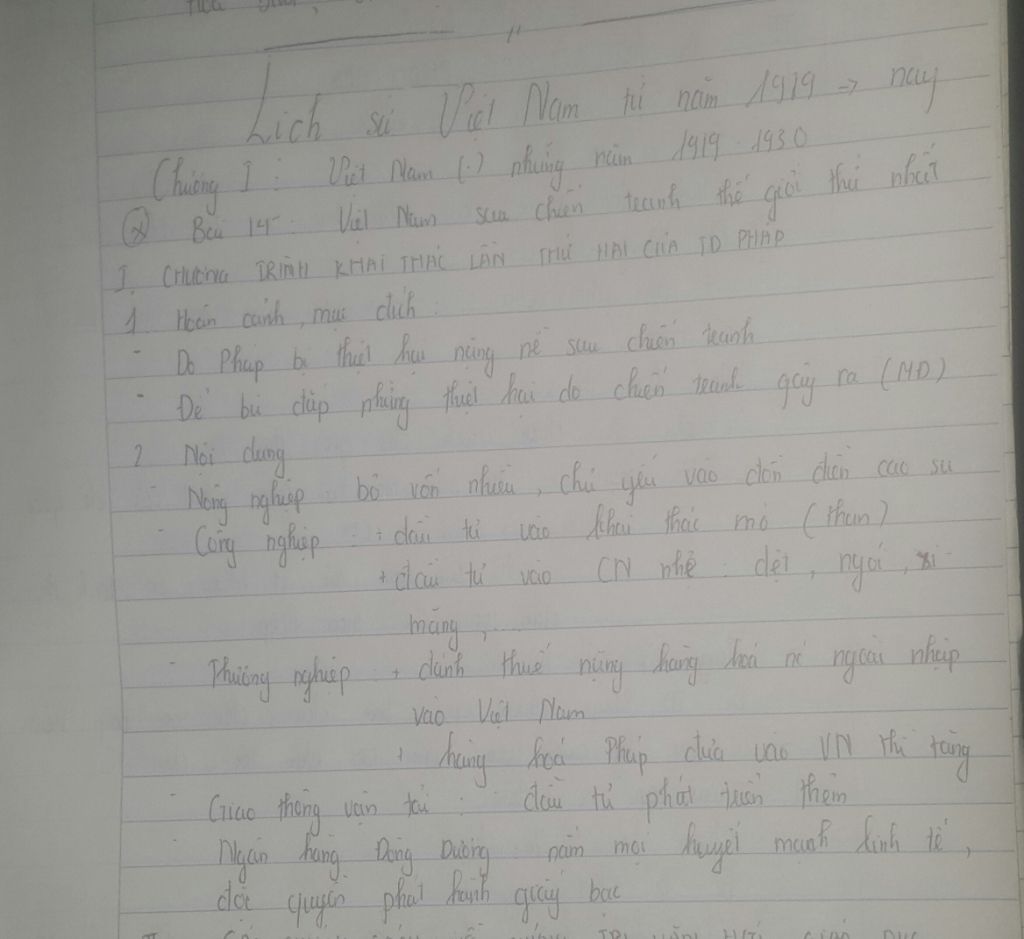 Lịch sử Việt Nam từ năm 1919 → nay
Chương I : Việt Nam (.) những năm 1919 - 1930
Bài 14 : Việt Nam sau chiến tranh thế giới thứ nhất
I. CHƯƠNG TRÌNH KHAI THÁC LẦN THỨ HAI CỦA TD PHÁP
1 Hoàn cảnh, mục đích :
- Do Pháp bị thiệt hại nặng nề sau chiến tranh
- Để bù đắp những thiệt hại do chiến tranh gây ra (MĐ)
2 Nội dung
- Nông nghiệp : bỏ vốn nhiều, chủ yếu vào đồn điền cao su
- Công nghiệp : + đầu tư vào khai thác mỏ (than)
+ đầu tư vào CN nhẹ : dệt, ngói, xi
măng, ...
- Thương nghiệp : + đánh thuế nặng hàng hoá nc ngoài nhập
vào Việt Nam
+ hàng hoá Pháp đưa vào VN thì tăng
- Giao thông vận tải : đầu tư phát triển thêm
- Ngân hàng Đông Dương : nắm mọi huyết mạch kinh tế,
độc quyền phát hành giấy bạc